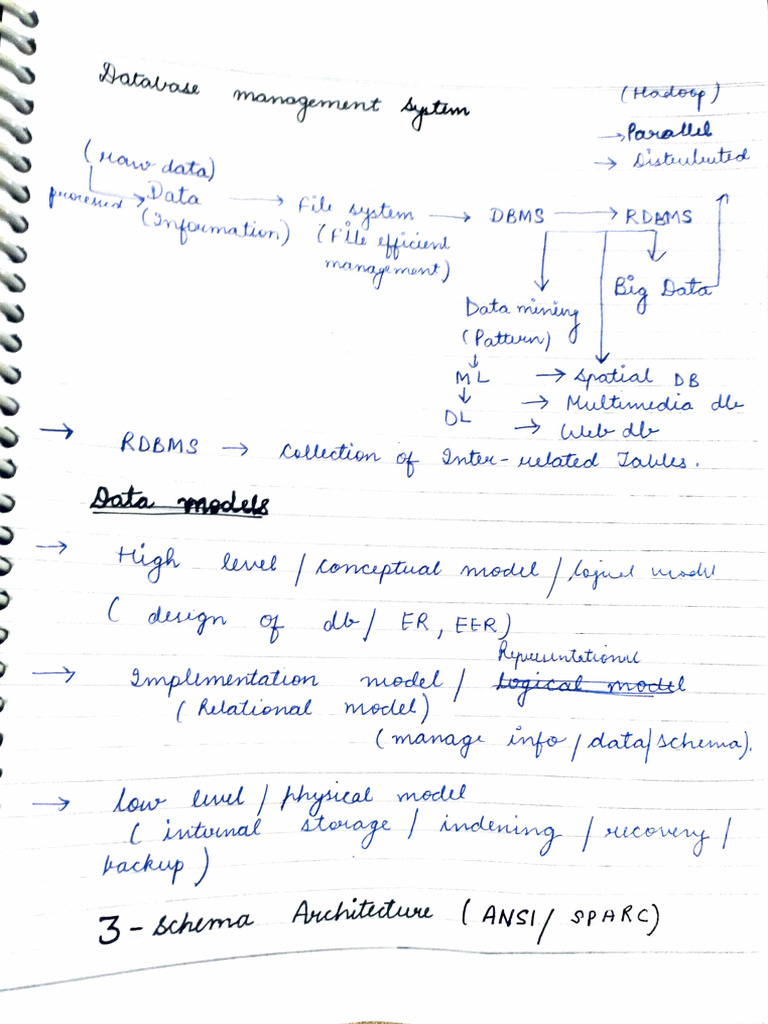 Database management system
(Hadoop)
→ Parallel
→ Distributed
(raw data)
processed → Data → File system → DBMS → RDBMS
(Information) (File efficient
management)
Big Data
Data mining
(Pattern)
ML → Spatial DB
DL → Multimedia db
→ Web db
→ RDBMS → Collection of Inter-related Tables.
Data models
→ High level / conceptual model / logical model
( design of db / ER, EER)
Representational
→ Implementation model / Logical model
(Relational model)
(manage info / data / schema).
→ low level / physical model
( internal storage / indening / recovery /
backup )
3 - Schema Architecture ( ANSI / SPARC)